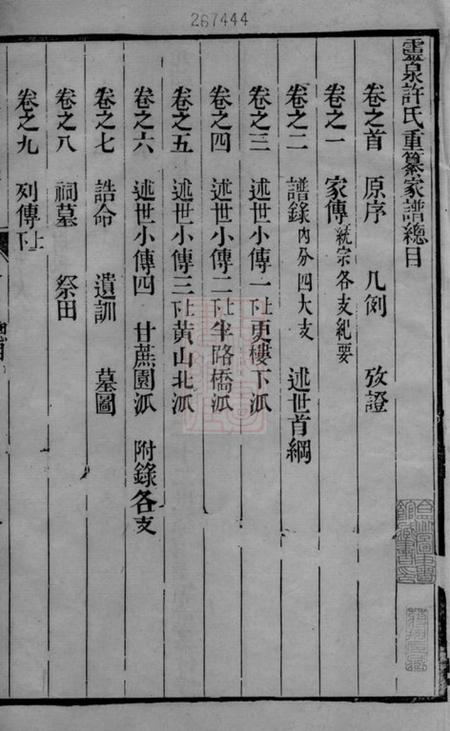 267444
靈泉許氏重纂家譜總目
卷之首 原序 凡例 攷證
卷之一 家傳統宗各支紀要
卷之二 譜錄內分四大支 述世首綱
卷之三 述世小傳一上下更樓下派
卷之四 述世小傳二上下半路橋派
卷之五 述世小傳三上下黃山北派
卷之六 述世小傳四 甘蔗園派 附錄各支
卷之七 誥命 遺訓 墓圖
卷之八 祠墓 祭田
卷之九 列傳上下